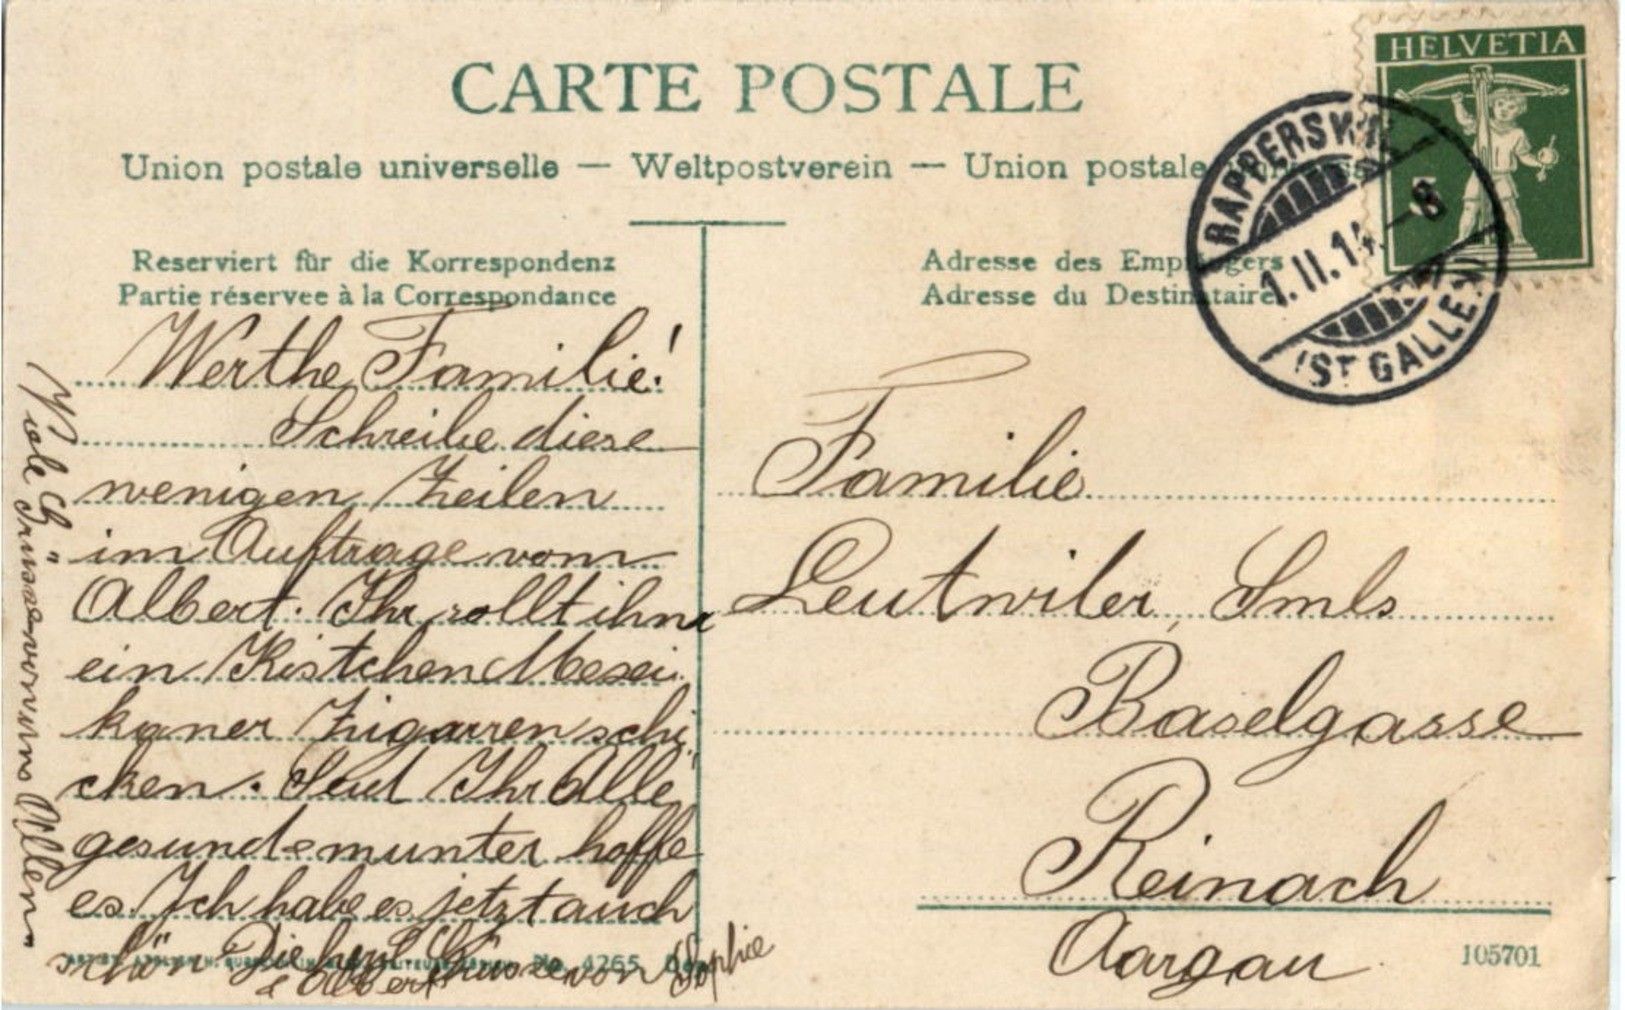 CARTE POSTALE
Union postale universelle — Weltpostverein — Union postale
HELVETIA
5
RAPPERSWIL
1.II.14.–8
(ST GALLEN)
Reserviert für die Korrespondenz
Partie réservee à la Correspondance
Adresse des Empfängers
Adresse du Destinataire
Werthe Familie!
Schreibe diese
wenigen Zeilen
im Auftrage vom
Albert. Ihr sollt ihm
ein Kistchen Mexei
kaner Zigarren schi
cken. Seid Ihr Alle
gesund & munter hoffe
es. Ich habe es jetzt auch
schön. Die Grüsse von Sophie
& Albert
Viele Grüsse von Allen
Familie
Leutwiler, Smls
Baselgasse
Reinach
Aargau
No. 4265
105701